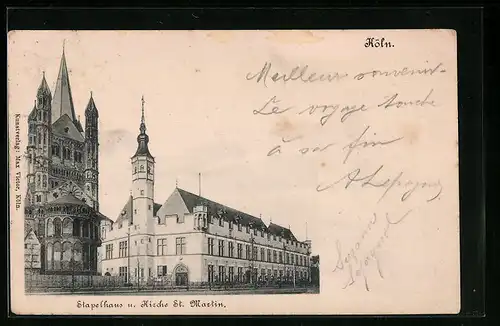 Köln.
Meilleur souvenir.
Le voyage touche
à sa fin
Kunstverlag: Max Victor, Köln.
Stapelhaus u. Kirche St. Martin.